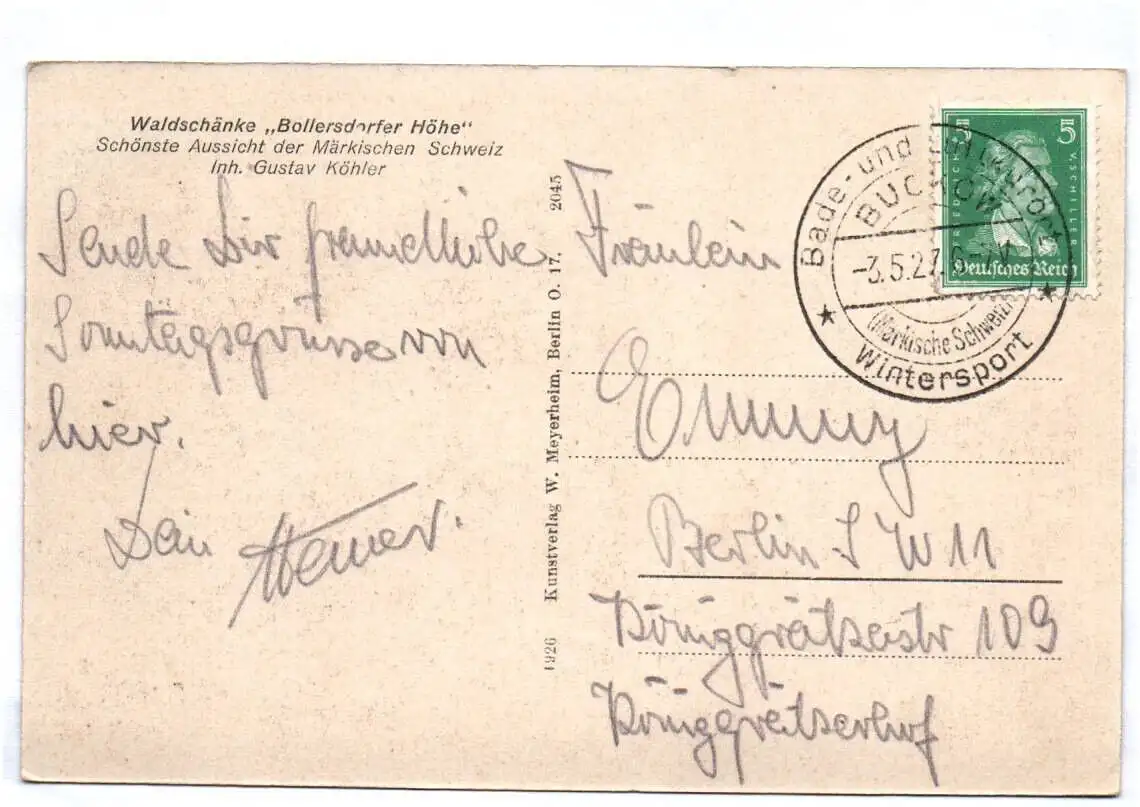 Waldschänke „Bollersdorfer Höhe“
Schönste Aussicht der Märkischen Schweiz
Inh. Gustav Köhler
Sende Dir freundliche
Sonntagsgrüsse von
hier.
Dein Werner.
1926 Kunstverlag W. Meyerheim, Berlin O. 17. 2045
5 5
FRIEDRICH V. SCHILLER
Deutsches Reich
Bade- und Luftkurort
BUCKOW
-3.5.27.6-7V
(Märkische Schweiz)
Wintersport
Fräulein
Emmy
Berlin S W 11
Königgrätzerstr 109
Königgrätzerhof